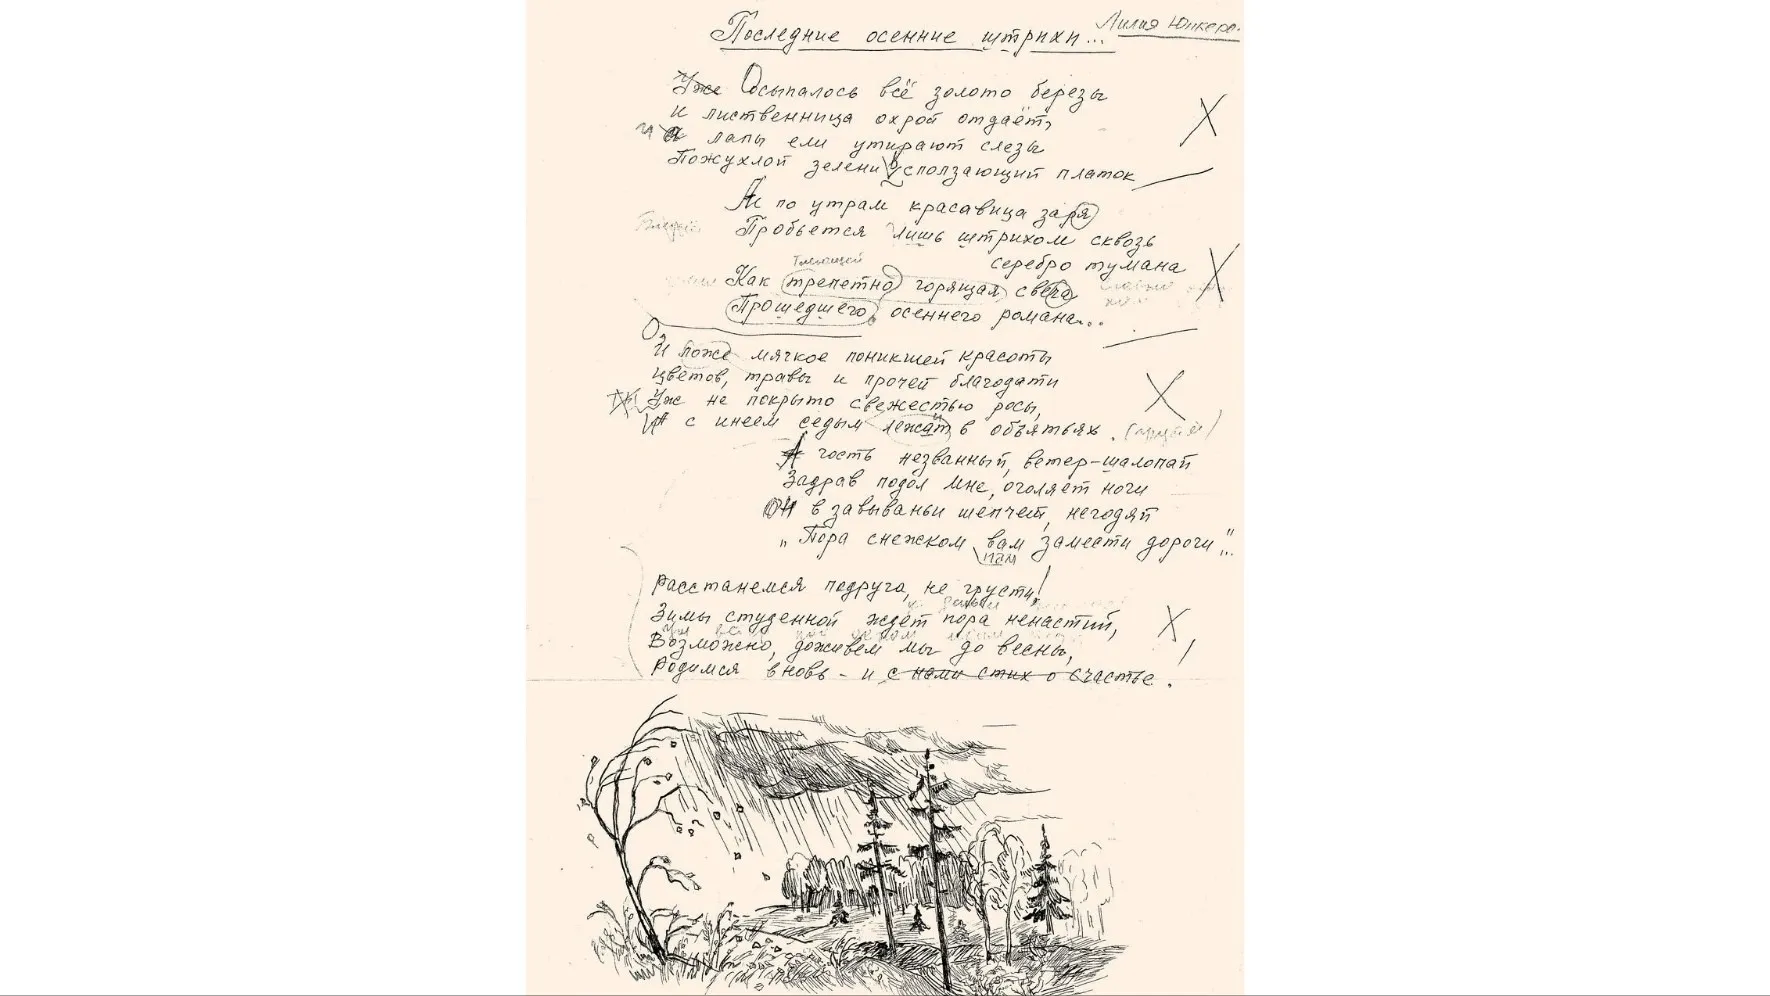 Последние осенние штрихи... Лилия Юнкеро.
Уже Осыпалось всё золото берёзы
и лиственница охрой отдаёт,
и а лапы ели утирают слезы
Пожухлой зелени в сползающий платок
И по утрам красавица заря
Пробьется лишь штрихом сквозь
серебро тумана
Тлеющей
Как трепетно горящая свеча
Прошедшего осеннего романа...
О,
И ложе мягкое поникшей красоты
цветов, травы и прочей благодати
Уж не покрыто свежестью росы,
И с инеем седым лежат в объятьях.
А гость незванный, ветер-шалопай
Задрав подол мне, оголяет ноги
Он в завываньи шепчет, негодяй
„Пора снежком вам замести дороги"...
нам
Расстанемся подруга, не грусти!
Зимы студенной ждёт пора ненастий,
Возможно, доживём мы до весны,
Родимся вновь - и с нами стих о счастье.